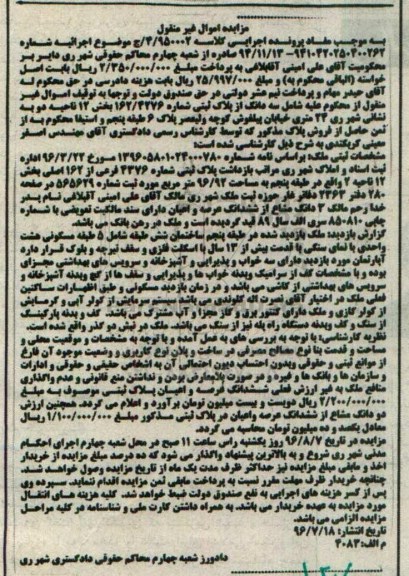 مزایده اموال غیر منقول
به موجب مفاد پرونده اجرایی کلاسه ۳/۹۵۰۰۰۲/ج موضوع اجرائیه شماره
۹۴۱۰۴۲۰۲۵۰۳۰۰۲۶۲-۹۴/۱۱/۱۳ صادره از شعبه چهارم محاکم حقوقی شهر ری دایر بر
محکومیت آقای علی امینی آقابلاغی به پرداخت مبلغ ۲/۳۵۰/۰۰۰/۰۰۰ ریال بابت اصل
خواسته (الباقی محکوم به) و مبلغ ۲۵/۹۹۷/۰۰۰ ریال بابت هزینه دادرسی در حق محکوم له
آقای حیدر مهام و پرداخت نیم عشر دولتی در حق صندوق دولت و توجها به توقیف اموال غیر
منقول از محکوم علیه شامل سه دانگ از پلاک ثبتی شماره ۱۶۲/۴۳۷۶ بخش ۱۲ ناحیه دو به
نشانی شهر ری ۲۴ متری خیابان پیلغوش کوچه ولیعصر پلاک ۶ طبقه پنجم و استیفا محکوم به از
ثمن حاصل از فروش پلاک مذکور که توسط کارشناس رسمی دادگستری آقای مهندس اصغر
معینی کربکندی به شرح ذیل کارشناسی شده است:
مشخصات ثبتی ملک: براساس نامه شماره ۱۳۹۶۰۵۸۰۱۰۲۴۰۰۰۷۸۰ مورخ ۹۶/۳/۲۲ اداره
ثبت اسناد و املاک شهر ری مراتب بازداشت پلاک ثبتی شماره ۴۳۷۶ فرعی از ۱۶۲ اصلی بخش
۱۲ ناحیه ۲ واقع در طبقه پنجم به مساحت ۹۶/۹۲ متر مربع مورد ثبت شماره ۵۶۵۶۲۹ در صفحه
۷۴ دفتر ۲۳۶۳ دفاتر فاز حوزه ثبت ملک شهر ری مالک آقای علی امینی آقبلاقی تمام پدر
خدا رحم مالک ۳ دانگ مشاع از ششدانگ عرصه و اعیان دارای سند مالکیت تعویضی با شماره
چاپی ۸۵۰۸۱۰ سری الف سال ۸۹ قید گردیده است و ملک در رهن بانک می باشد.
گزارش بازدید: ملک بازدید شده در طبقه پنجم ساختمان شش طبقه شامل ۵ طبقه مسکونی هشت
واحدی با نمای سنگی با قدمت بیش از ۱۳ سال با اسکلت فلزی و سقف تیرچه و بلوک قرار دارد
آپارتمان مورد بازدید دارای سه خواب و پذیرایی و آشپزخانه و سرویس های بهداشتی مجزای
بوده و با مشخصات کف از سرامیک وبدنه خواب ها و پذیرایی و سقف ها از گچ وبدنه آشپزخانه و
سرویس های بهداشتی از کاشی می باشد و در زمان بازدید مسکونی و طبق اظهارات ساکنین
فعلی ملک در اختیار آقای نصرت اله گلوندی می باشد. سیستم سرمایش از کولر آبی و گرمایش
از کولر گازی و ملک دارای کنتور برق و گاز مجزا و آب مشترک می باشد. کف و بدنه پارکینگ
از سنگ و کف وبدنه دستگاه راه پله نیز از سنگ می باشد. ملک در نبش دو گذر واقع شده است.
نظریه کارشناسی: با توجه به بررسی های به عمل آمده و با توجه به مشخصات و موقعیت محلی و
مساحت و قدمت بنا نوع مصالح مصرفی در ساخت و پلان نوع کاربری و وضعیت موجود آن فارغ
از موانع ثبتی و حقوقی وبدون احتساب دیون احتمالی آن به اشخاص حقیقی و حقوقی و ادارات
و سازمان ها و بانک ها و غیره و در صورت بلامعارض بودن و نداشتن منع قانونی و عدم واگذاری
منافع ملک به غیر ارزش فعلی ششدانگ عرصه و اعیان پلاک ثبتی موصوف به مبلغ
۲/۲۰۰/۰۰۰/۰۰۰ ریال دویست و بیست میلیون تومان برآورد و اعلام می گردد. همچنین ارزش
دو دانگ مشاع از ششدانگ عرصه واعیان در پلاک ثبتی مذکور مبلغ ۱/۱۰۰/۰۰۰/۰۰۰ ریال
معادل یکصد و ده میلیون تومان محاسبه می گردد.
مزایده در تاریخ ۹۶/۸/۷ روز یکشنبه راس ساعت ۱۱ صبح در محل شعبه چهارم اجرای احکام
مدنی شهر ری شروع و به بالاترین پیشنهاد واگذار می شود که ده درصد مبلغ مزایده از خریدار
اخذ و مابقی مبلغ مزایده نیز حداکثر ظرف مدت یک ماه از تاریخ مزایده وصول خواهد شد.
چنانچه خریدار ظرف مهلت مقرر نسبت به پرداخت مابقی ثمن مزایده اقدام ننماید. سپرده وی
پس از کسر هزینه های اجرایی به نفع صندوق دولت ضبط خواهد شد. کلیه هزینه های انتقال
مورد مزایده به عهده خریدار می باشد. به همراه داشتن کارت ملی و شناسنامه در کلیه مراحل
مزایده الزامی می باشد.
تاریخ انتشار: ۹۶/۷/۱۸
م الف: ۴۰۸۳
دادورز شعبه چهارم محاکم حقوقی دادگستری شهر ری